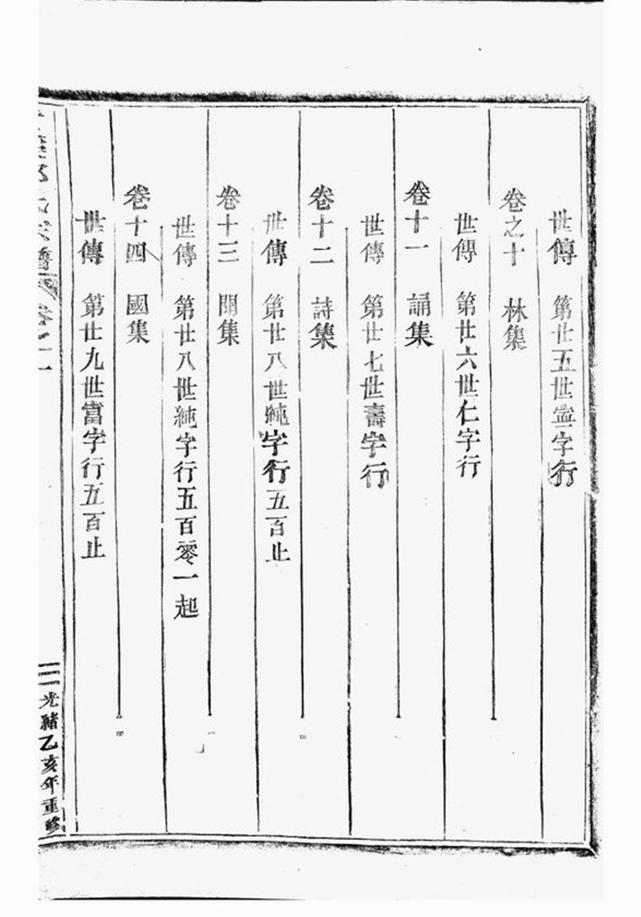 世傳　第廿五世寍字行
卷之十　林集
世傳　第廿六世仁字行
卷十一　誦集
世傳　第廿七世壽字行
卷十二　詩集
世傳　第廿八世純字行五百止
卷十三　聞集
世傳　第廿八世純字行五百零一起
卷十四　國集
世傳　第廿九世當字行五百止
氏家譜　卷之一
光緒乙亥年重修